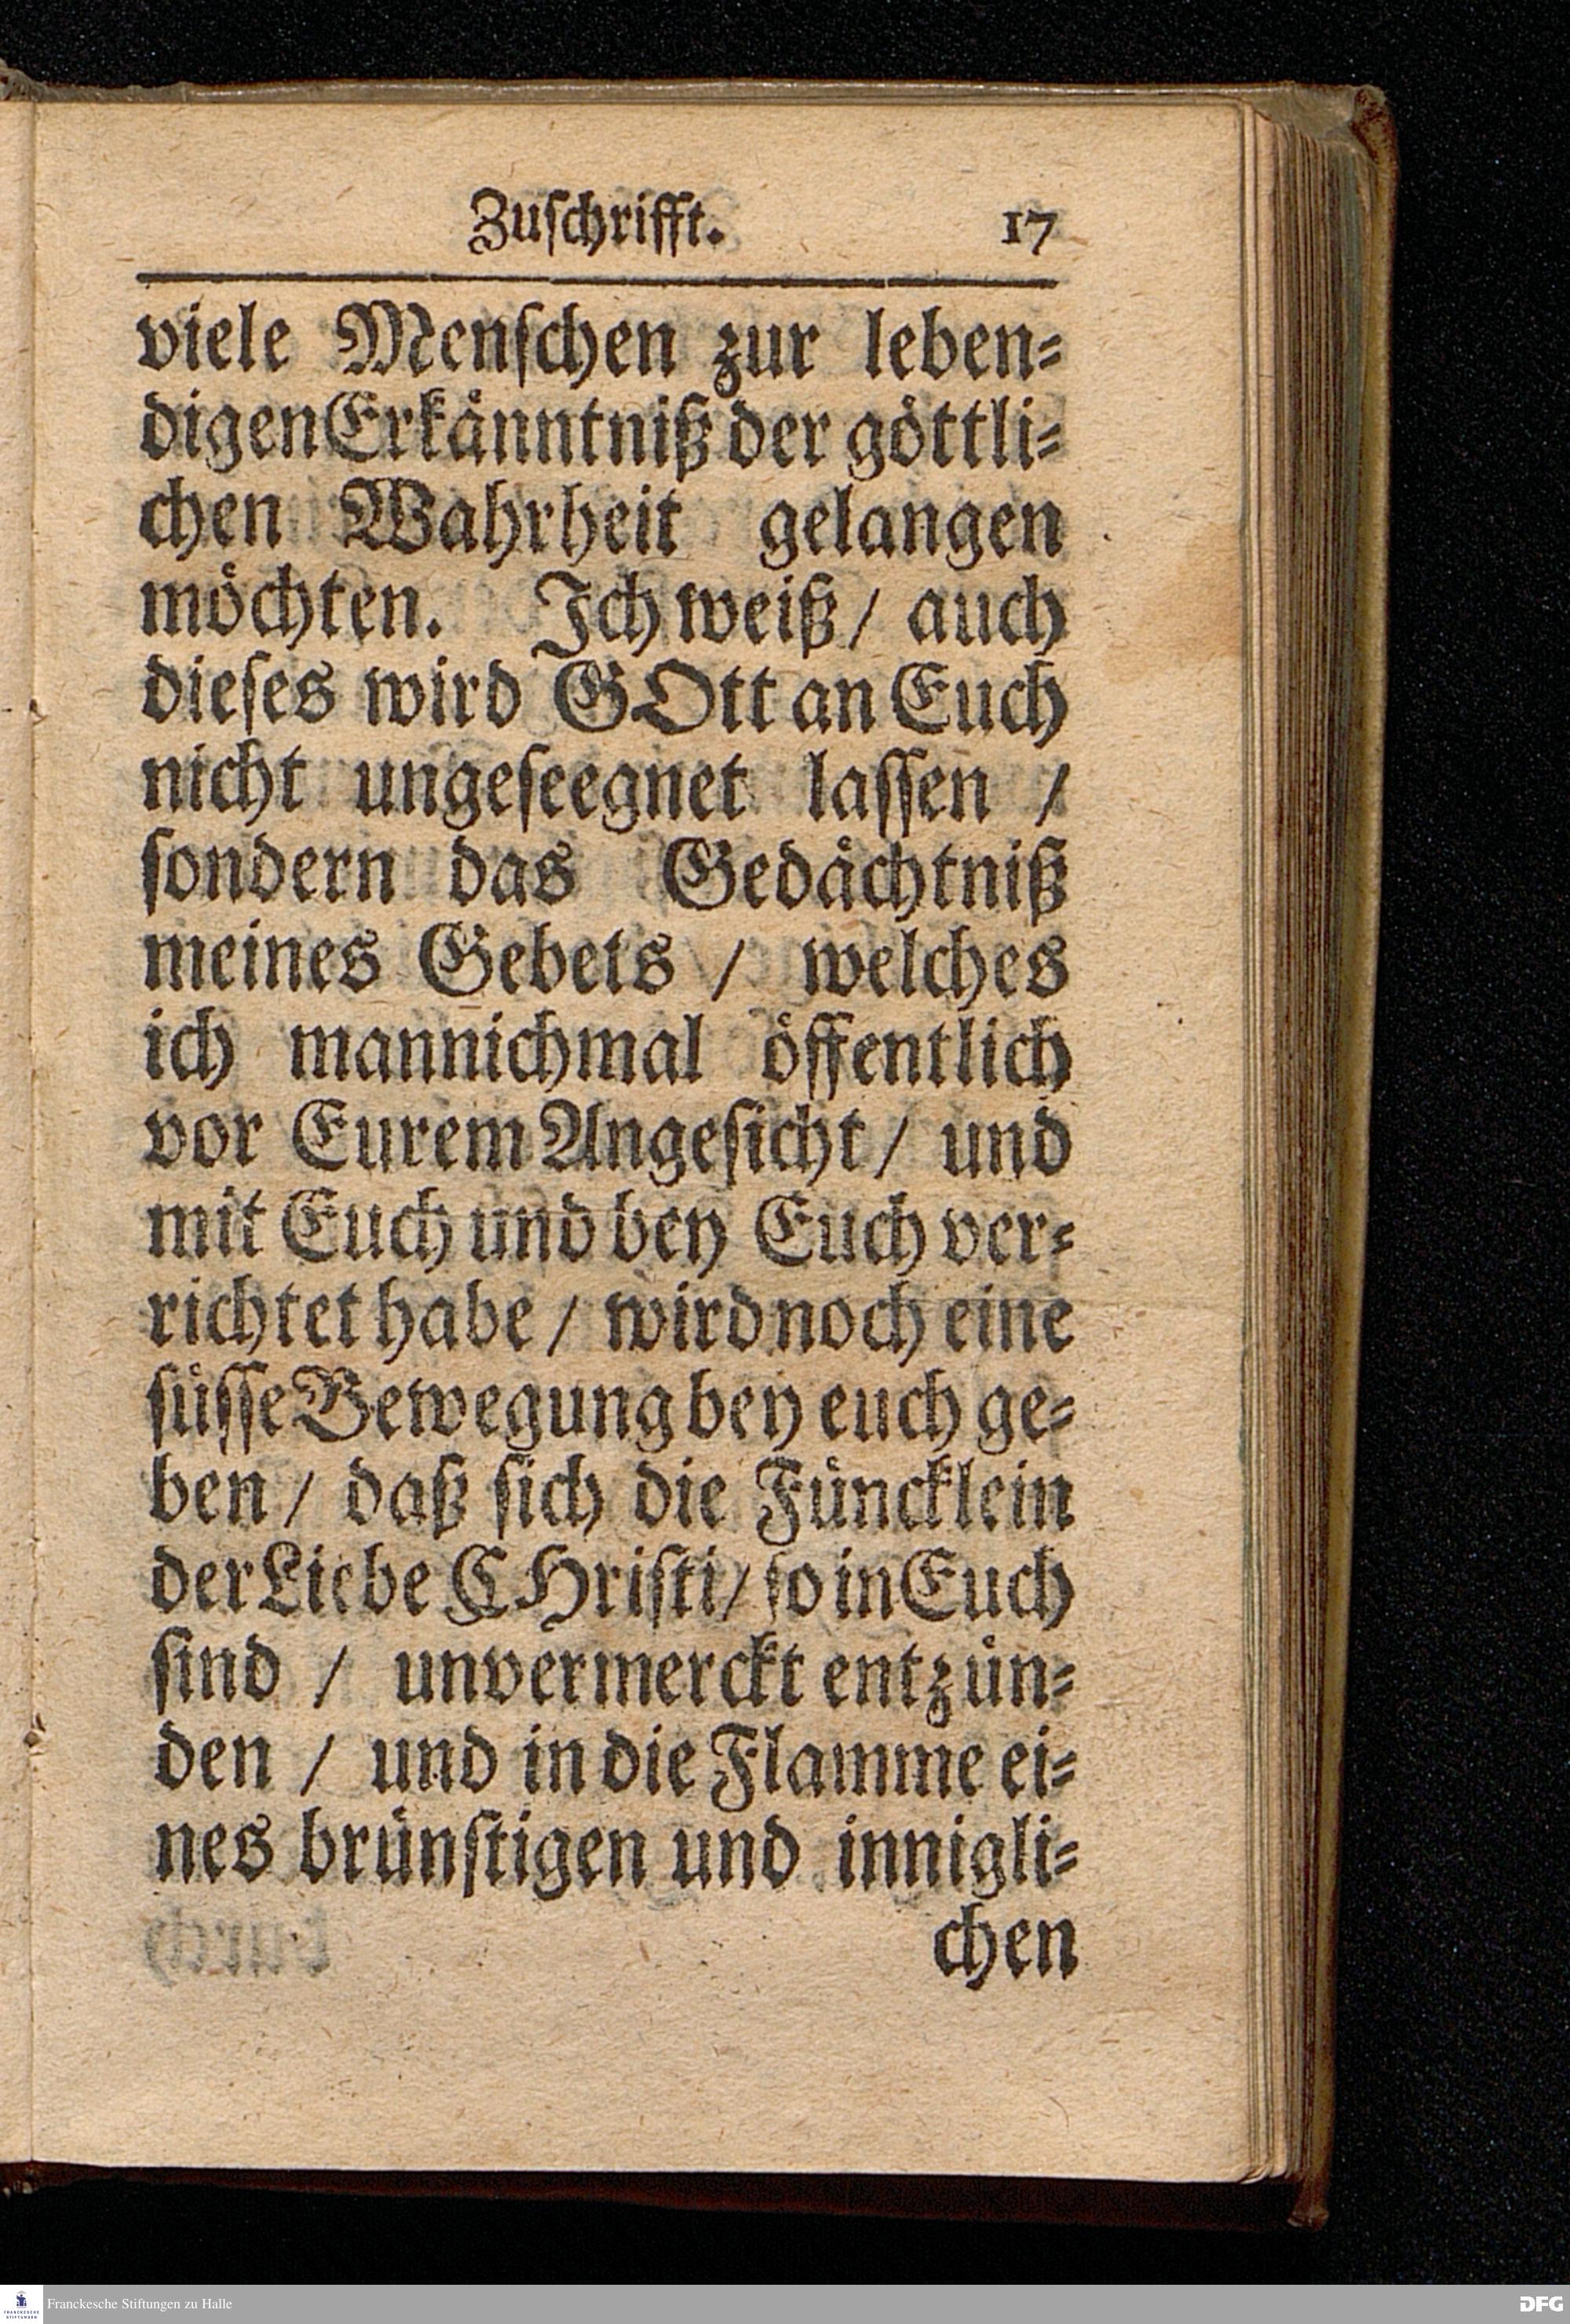 Zuſchrifft. 17
viele Menſchen zur leben⸗
digen Erkaͤnntniß der goͤttli⸗
chen Wahrheit gelangen
moͤchten. Ich weiß / auch
dieſes wird GOtt an Euch
nicht ungeſeegnet laſſen /
ſondern das Gedaͤchtniß
meines Gebets / welches
ich mannichmal oͤffentlich
vor Eurem Angeſicht / und
mit Euch und bey Euch ver⸗
richtet habe / wird noch eine
ſuͤſſe Bewegung bey euch ge⸗
ben / daß ſich die Fuͤncklein
der Liebe CHriſti / ſo in Euch
ſind / unvermerckt entzuͤn⸗
den / und in die Flamme ei⸗
nes bruͤnſtigen und innigli⸗
chen
FRANCKESCHE STIFTUNGEN
Franckesche Stiftungen zu Halle
DFG